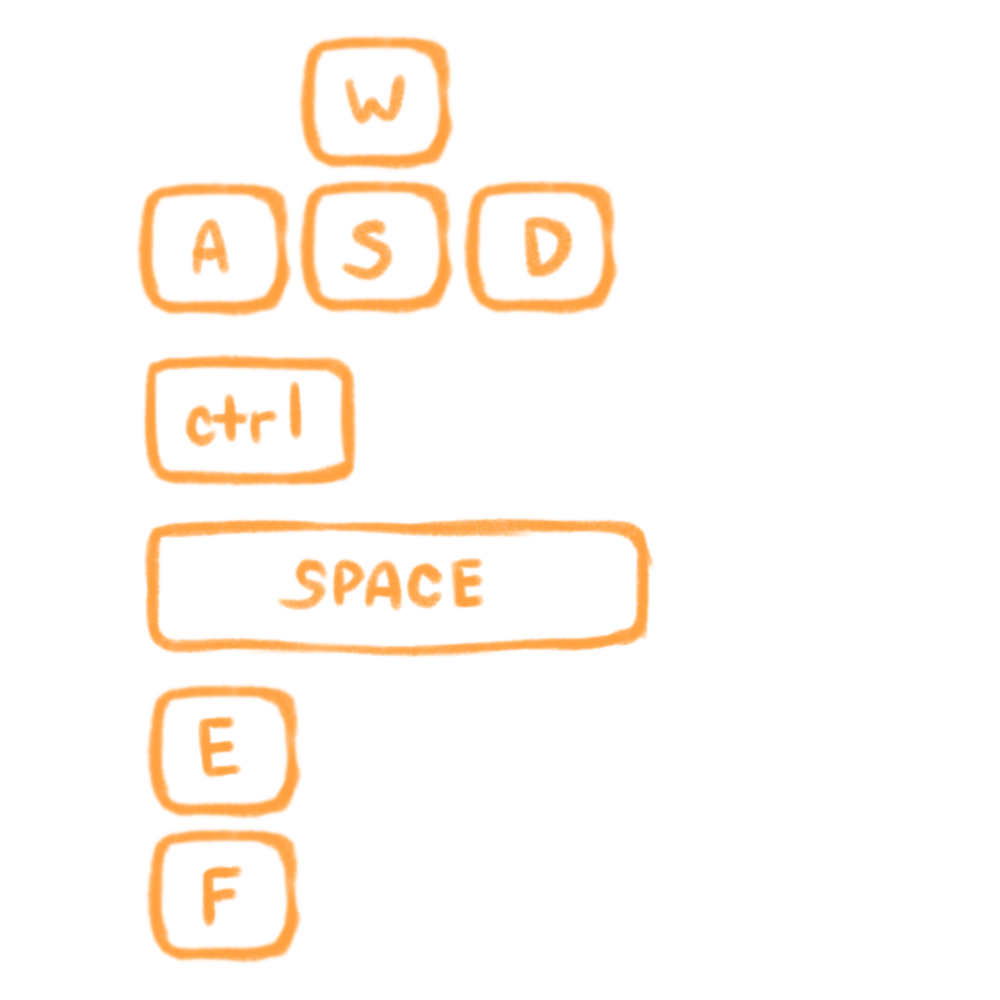 W
A S D
ctrl
SPACE
E
F